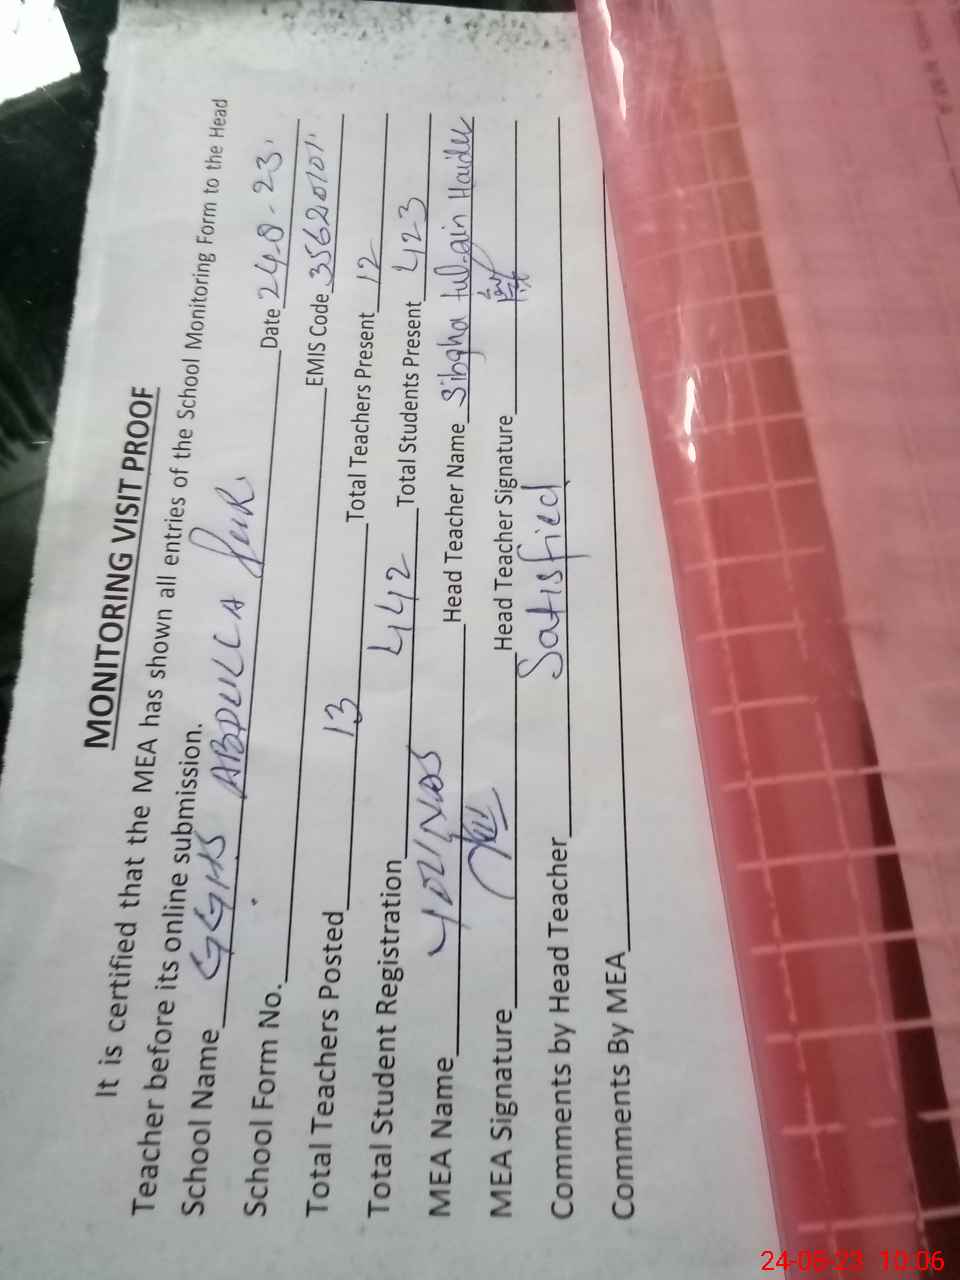 MONITORING VISIT PROOF
It is certified that the MEA has shown all entries of the School Monitoring Form to the Head
Teacher before its online submission.
School Name GGHS ABDULLA PUR Date 24-8-23
School Form No. EMIS Code 35620101
Total Teachers Posted 13 Total Teachers Present 12
Total Student Registration 442 Total Students Present 423
MEA Name YOUNAS Head Teacher Name Sibgha tul-ain Haider
MEA Signature Head Teacher Signature
Comments by Head Teacher Satisfied
Comments By MEA
24-08-23 10:06